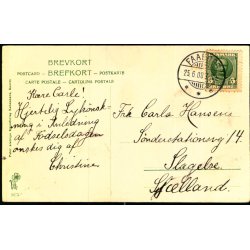 BREVKORT
POSTCARD — BREFKORT — POSTKARTE
CARTE POSTALE — CARTOLINA POSTALE
FAABORG
25.6.08
Kære Carle!
Hjertelig Lykønsk-
ning i Anledning
af Fødselsdagen
ønskes dig af
Christine
Frk Carla Hansens
Sønderstationsvej
Slagelse
Sjælland.